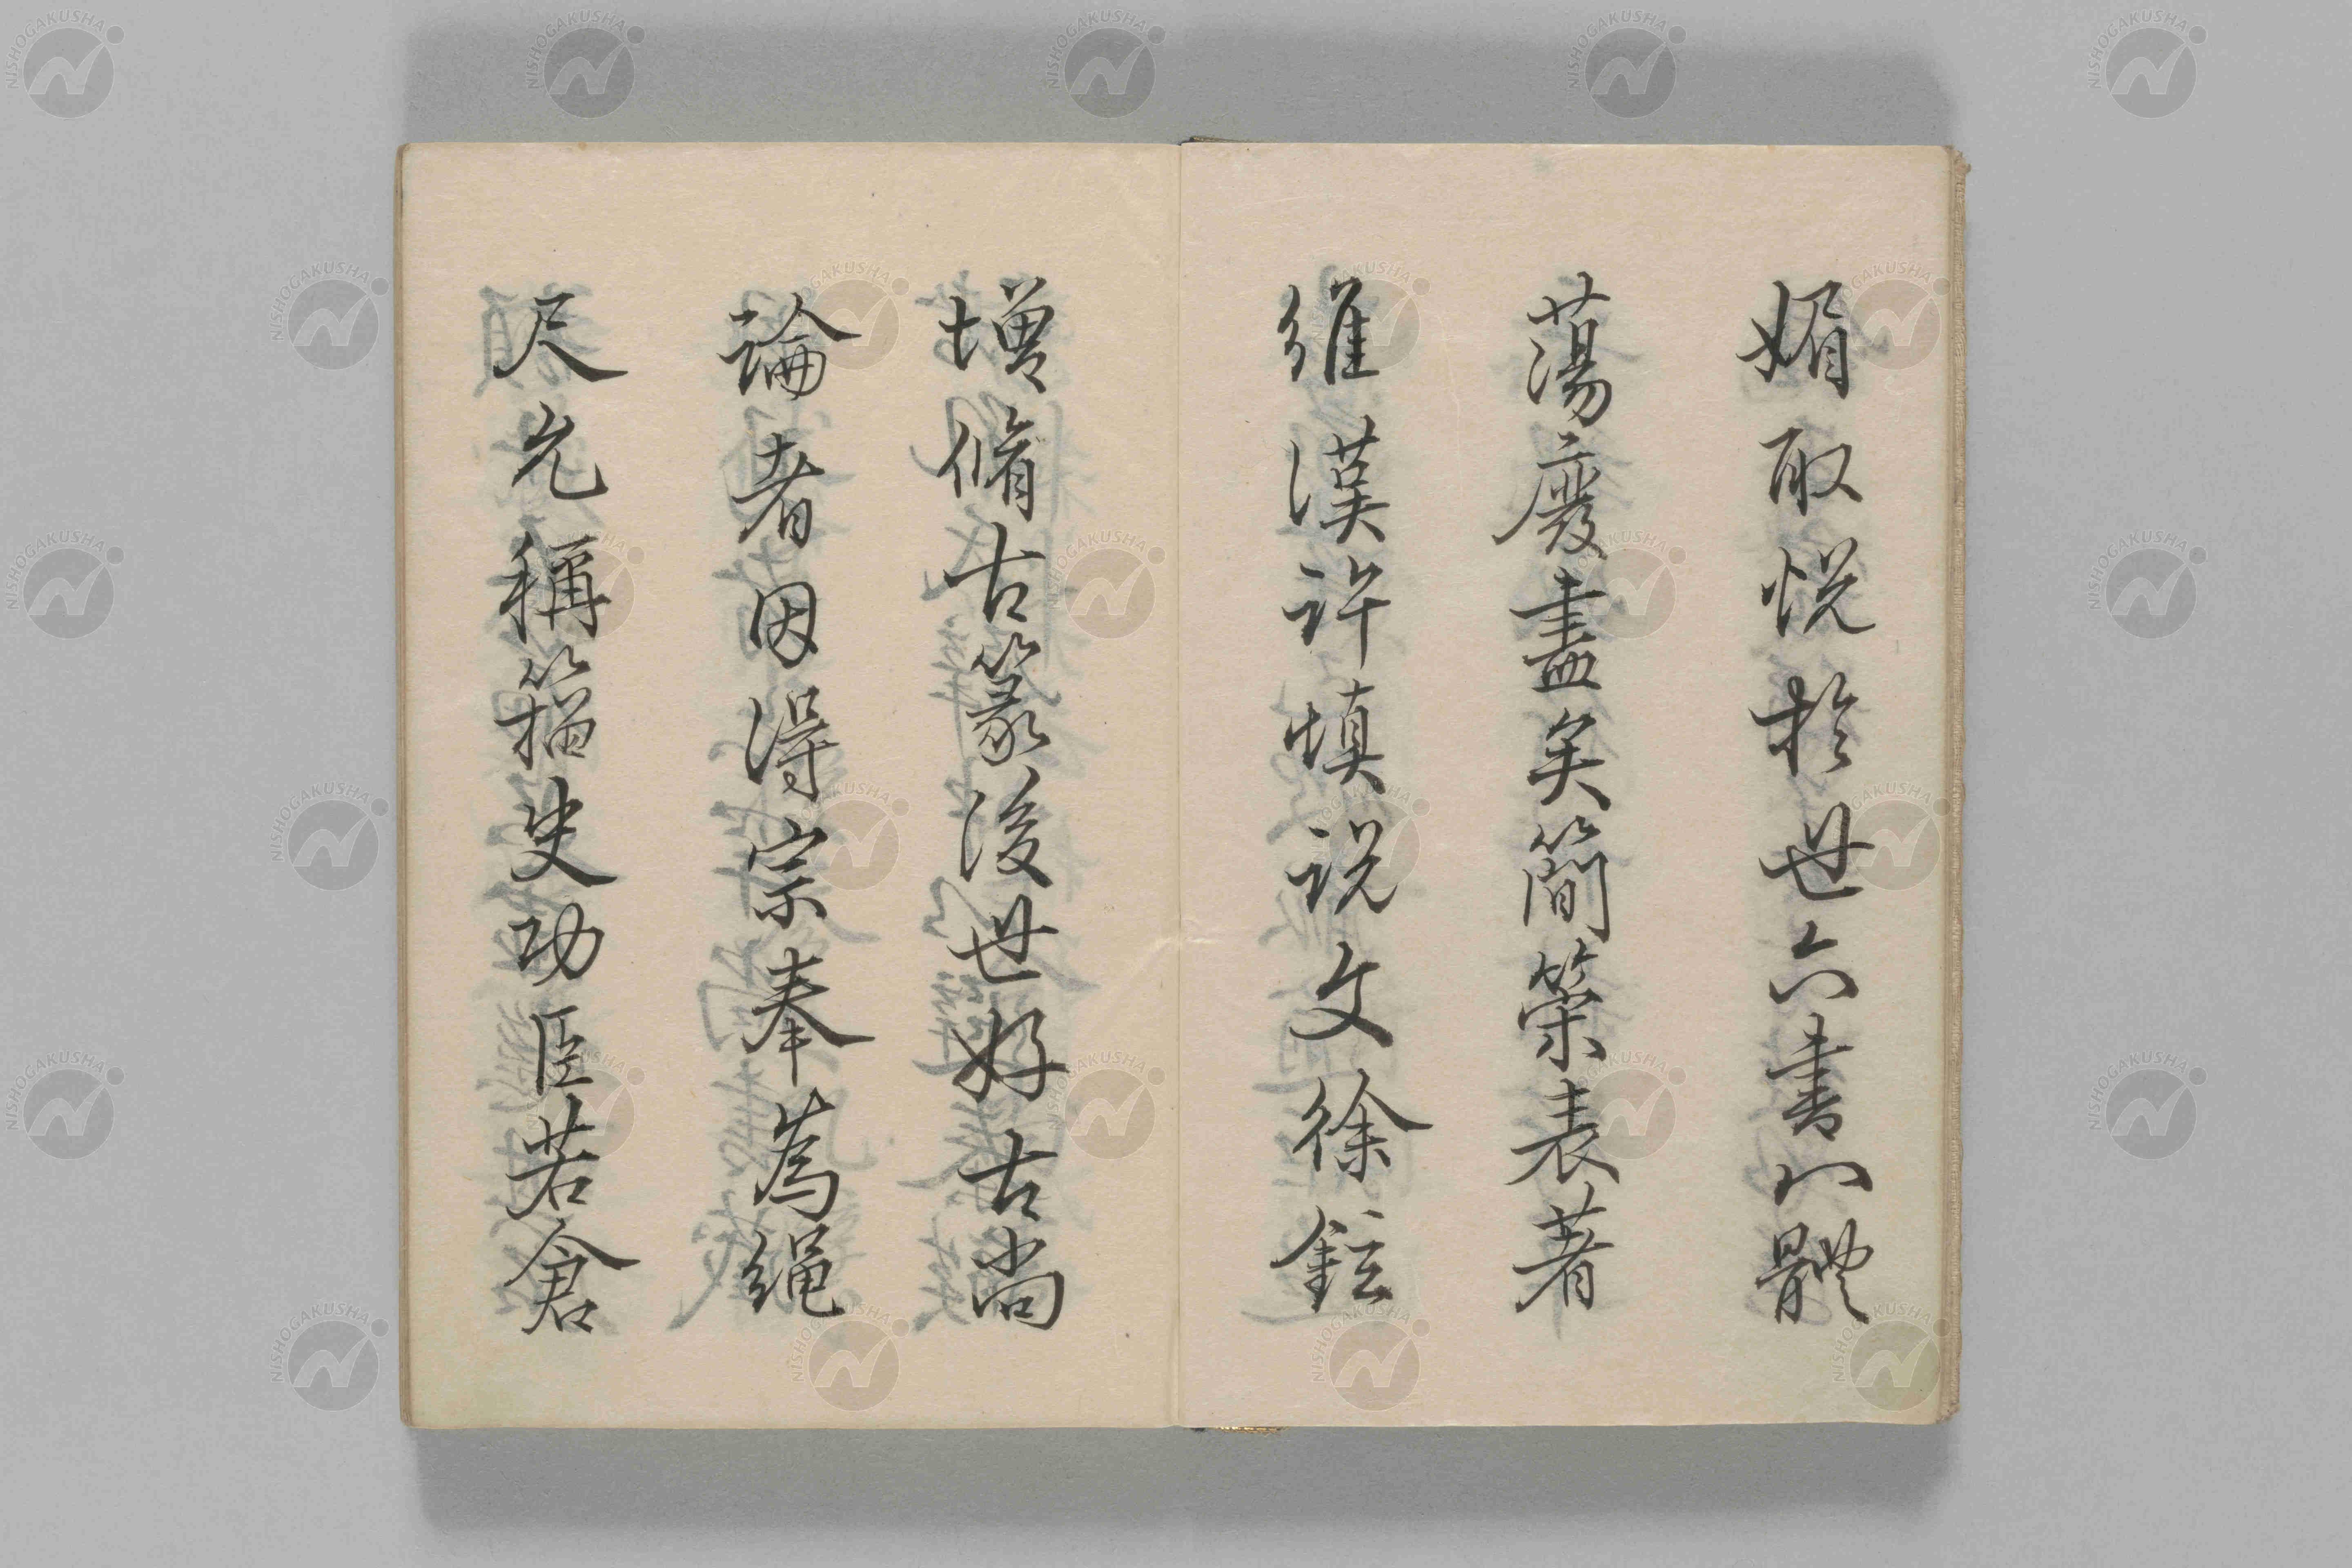 媚取悦於世六書八體
蕩廢盡矣簡策表著
維漢許慎説文徐鉉
増脩古篆後世好古尚
論者因得宗奉為繩
尺允稱籀史功臣若倉
NISHOGAKUSHA